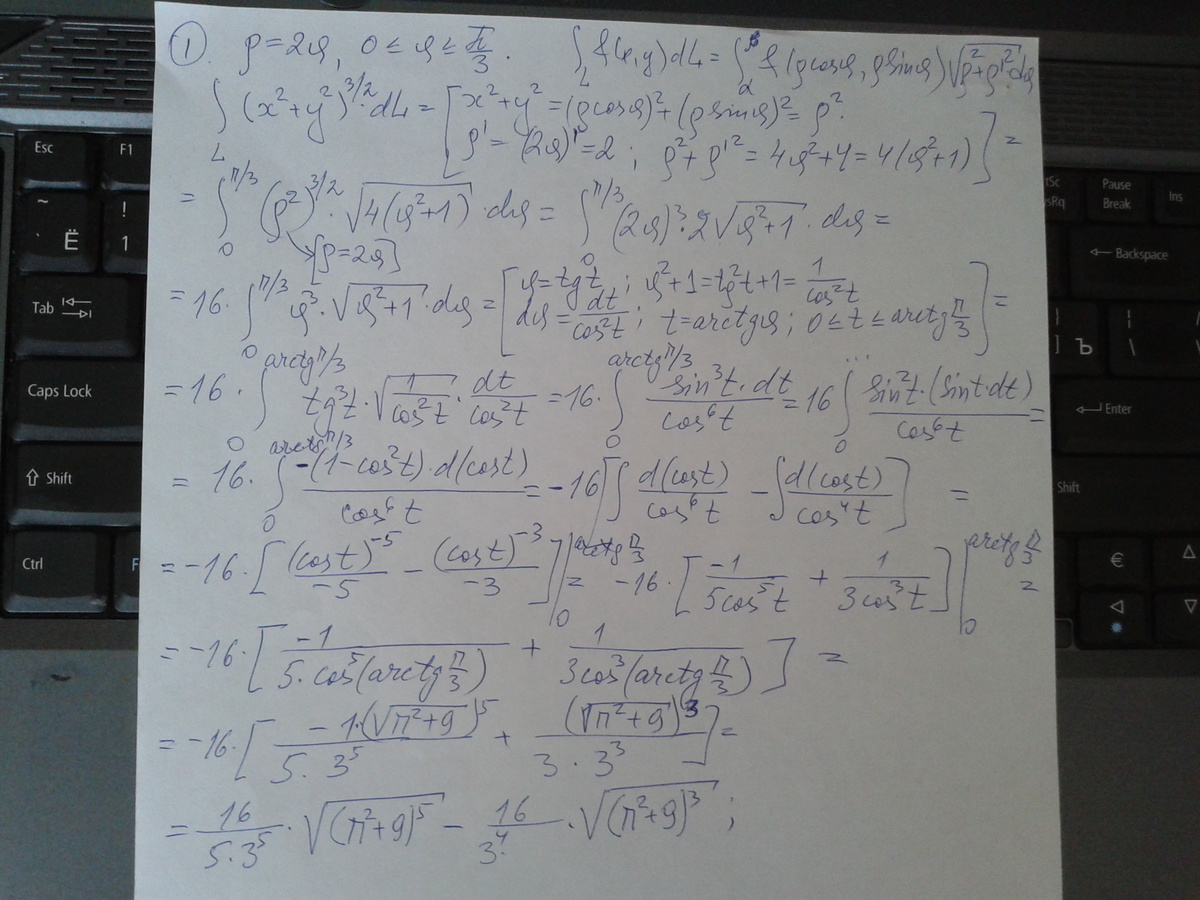 ① ρ = 2φ, 0 ≤ φ ≤ π/3. ∫_L f(x,y)dL = ∫_α^β f(ρcosφ, ρsinφ)√(ρ²+ρ'²)·dφ
∫_L (x²+y²)^{3/2}·dL = [x²+y² = (ρcosφ)²+(ρsinφ)² = ρ².
ρ' = (2φ)' = 2; ρ²+ρ'² = 4φ²+4 = 4(φ²+1)] =
= ∫_0^{π/3} (ρ²)^{3/2}·√(4(φ²+1))·dφ = ∫_0^{π/3} (2φ)³·2√(φ²+1)·dφ =
[ρ=2φ]
= 16·∫_0^{π/3} φ³·√(φ²+1)·dφ = [φ = tgt; φ²+1 = tg²t+1 = 1/cos²t
dφ = dt/cos²t; t = arctgφ; 0 ≤ t ≤ arctg π/3] =
= 16·∫_0^{arctg π/3} tg³t·√(1/cos²t)·dt/cos²t = 16·∫_0^{arctg π/3} sin³t·dt/cos⁶t = 16∫_0^{...} sin²t·(sint·dt)/cos⁶t =
= 16·∫_0^{arctg π/3} -(1-cos²t)·d(cost)/cos⁶t = -16[∫d(cost)/cos⁶t - ∫d(cost)/cos⁴t] =
= -16·[(cost)^{-5}/-5 - (cost)^{-3}/-3]|_0^{arctg π/3} = -16·[-1/5cos⁵t + 1/3cos³t]|_0^{arctg π/3} =
= -16·[-1/5·cos⁵(arctg π/3) + 1/3cos³(arctg π/3)] =
= -16·[-1·(√(π²+9))⁵/5·3⁵ + (√(π²+9))³/3·3³] =
= 16/5·3⁵·√((π²+9)⁵) - 16/3⁴·√((π²+9)³);
Esc
F1
~
` Ё
!
1
Tab
Caps Lock
Shift
Ctrl
F
Sc
ysRq
Pause
Break
Ins
Backspace
}
]
Ъ
|
\
\
Enter
Shift
€